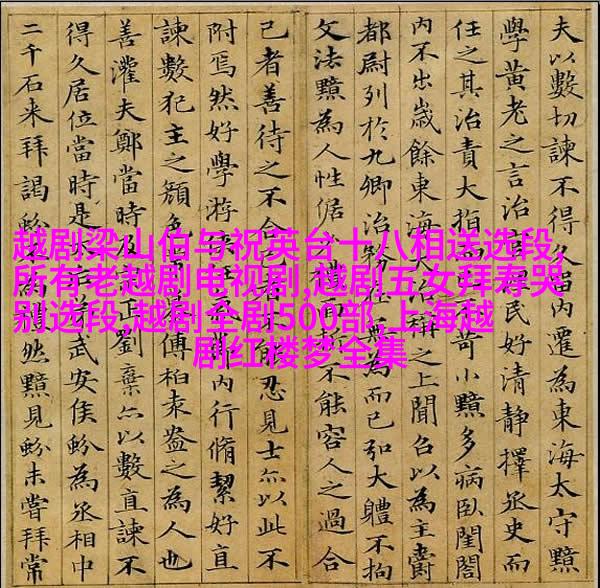 越剧梁山伯与祝英台十八相送选段,
所有老越剧电视剧,越剧五女拜寿哭
别选段,越剧全剧500部,上海越
剧红楼梦全集
夫以數切諫不得久內遷為東海太守黯
學黃老之言治民好清靜擇丞史而
任之其治責大指苛小黯多病臥閨閤
內不出歲餘東海大治之上聞召以為主爵
都尉列於九卿治無為而已弘大體不拘
文法黯為人性倨不能容人之過合
己者善待之不合忍見士亦以此不
附焉然好學游內行脩絜好直
諫數犯主之顏色傅柏袁盎之為人也
善灌夫鄭當時及正劉棄亦以數直諫不
得久居位當時是武安侯蚡為丞相中
二千石来拜謁蚡不然黯見蚡未嘗拜常